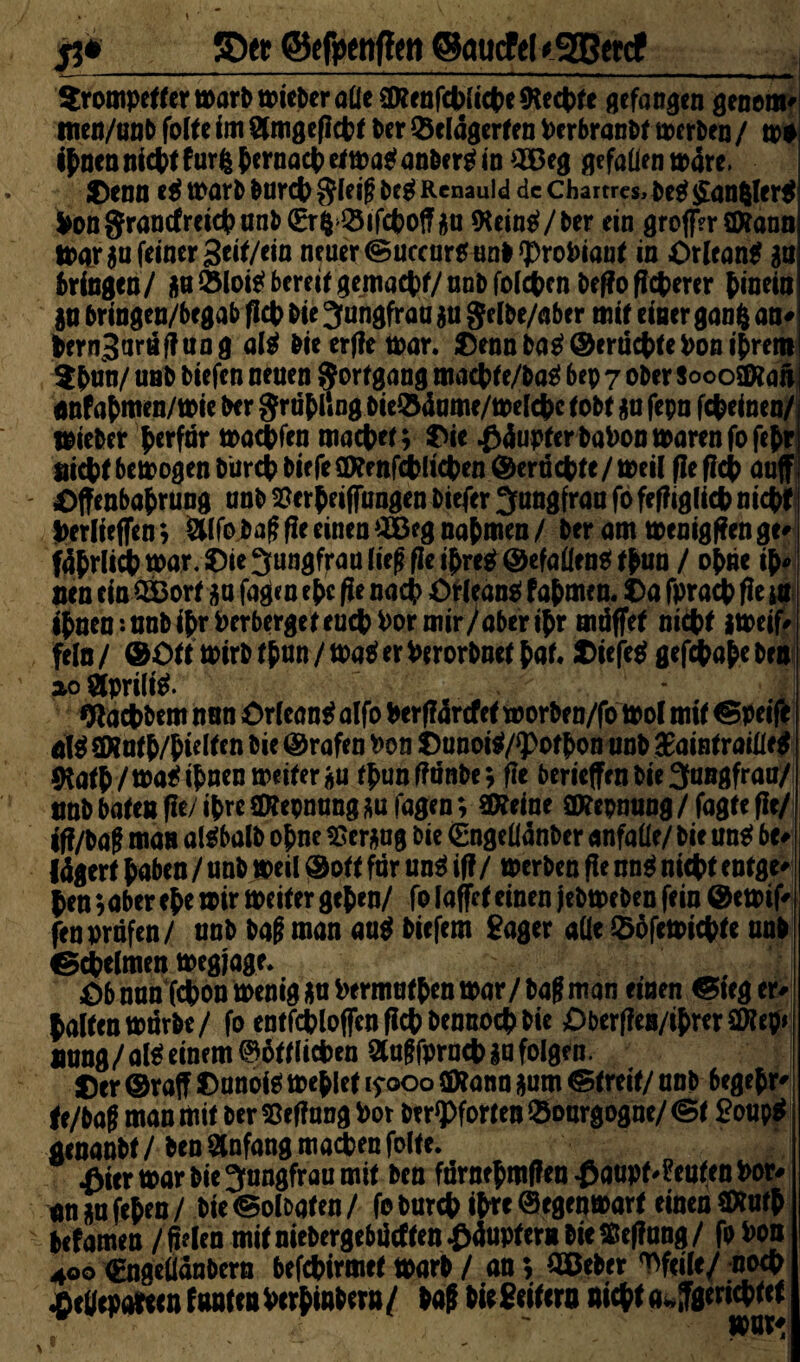 Der Gespensten Gauckel-Werck
Trompetter ward wieder alle Menschliche Rechte gefangen genom-
men/und solte im Angesicht der Belägerten verbrandt werden/ wo
ihnen nicht kurtz hernach etwas anders in Weg gefallen wäre.
Denn es ward durch Fleiß des Renauld de Chartres, des Cantzlers
von Franckreich und Ertz-Bischoff zu Reins/ der ein grosser Mann
war zu seiner Zeit/ein neuer Succurs und Proviant in Orleans zu
bringen/ zu Blois bereit gemacht/ und solchen desto sicherer hinein
zu bringen/begab sich die Jungfrau zu Felde/aber mit einer gantz an-
dern Zurüstung als die erste war. Denn das Gerüchte von ihrem
Thun/ und diesen neuen Fortgang machte/das bey 7 oder 8000 Mañ
ankahmen/wie der Frühling die Bäume/welche todt zu seyn scheinen/
wieder herfür wachsen machet; Die Häupter davon waren so sehr
nicht bewogen durch diese Menschlichen Gerüchte/ weil sie sich auff
Offenbahrung und Verheissungen dieser Jungfrau so festiglich nicht
verliessen; Also daß sie einen Weg nahmen / der am wenigsten ge-
fährlich war. Die Jungfrau ließ sie ihres Gefallens thun / ohne ih-
nen ein Wort zu sagen ehe sie nach Orleans kahmen. Da sprach sie zu
ihnen: und ihr verberget euch vor mir/ aber ihr müsset nicht zweif-
feln / GOtt wird thun / was er verordnet hat. Dieses geschahe den
20 Aprilis.
Nachdem nun Orleans also verstärcket worden/so wol mit Speise
als Muth/hielten die Grafen von Dunois/Pothon und Xaintrailles
Rath / was ihnen weiter zu thun stünde; sie berieffen die Jungfrau/
und baten sie/ ihre Meynung zu sagen; Meine Meynung / sagte sie/
ist/daß man alsbald ohne Verzug die Engelländer anfalle/ die uns be-
lägert haben / und weil Gott für uns ist / werden sie uns nicht entge-
hen; aber ehe wir weiter gehen/ so lasset einen jedweden sein Gewis-
sen prüfen/ und daß man aus diesem Lager alle Bösewichte und
Schelmen wegjage.
Ob nun schon wenig zu vermuthen war / daß man einen Sieg er-
halten würde / so entschlossen sich dennoch die Obersten/ihrer Mey-
nung/ als einem Göttlichen Außspruch zu folgen.
Der Graff Dunois wehlet 15000 Mann zum Streit/ und begehr-
te/daß man mit der Vestung vor der Pforten Bourgogne/ St Loups
genandt / den Anfang machen solte.
Hier war die Jungfrau mit den fürnehmsten Haupt-Leuten vor-
an zu sehen / die Soldaten / so durch ihre Gegenwart einen Muth
bekamen / fielen mit niedergebückten Häuptern die Vestung / so von
400 Engelländern beschirmet ward / an; Weder Pfeile/ noch
Hellepatten kunten verhindern / daß die Leitern nicht auffgerichtet
wur-